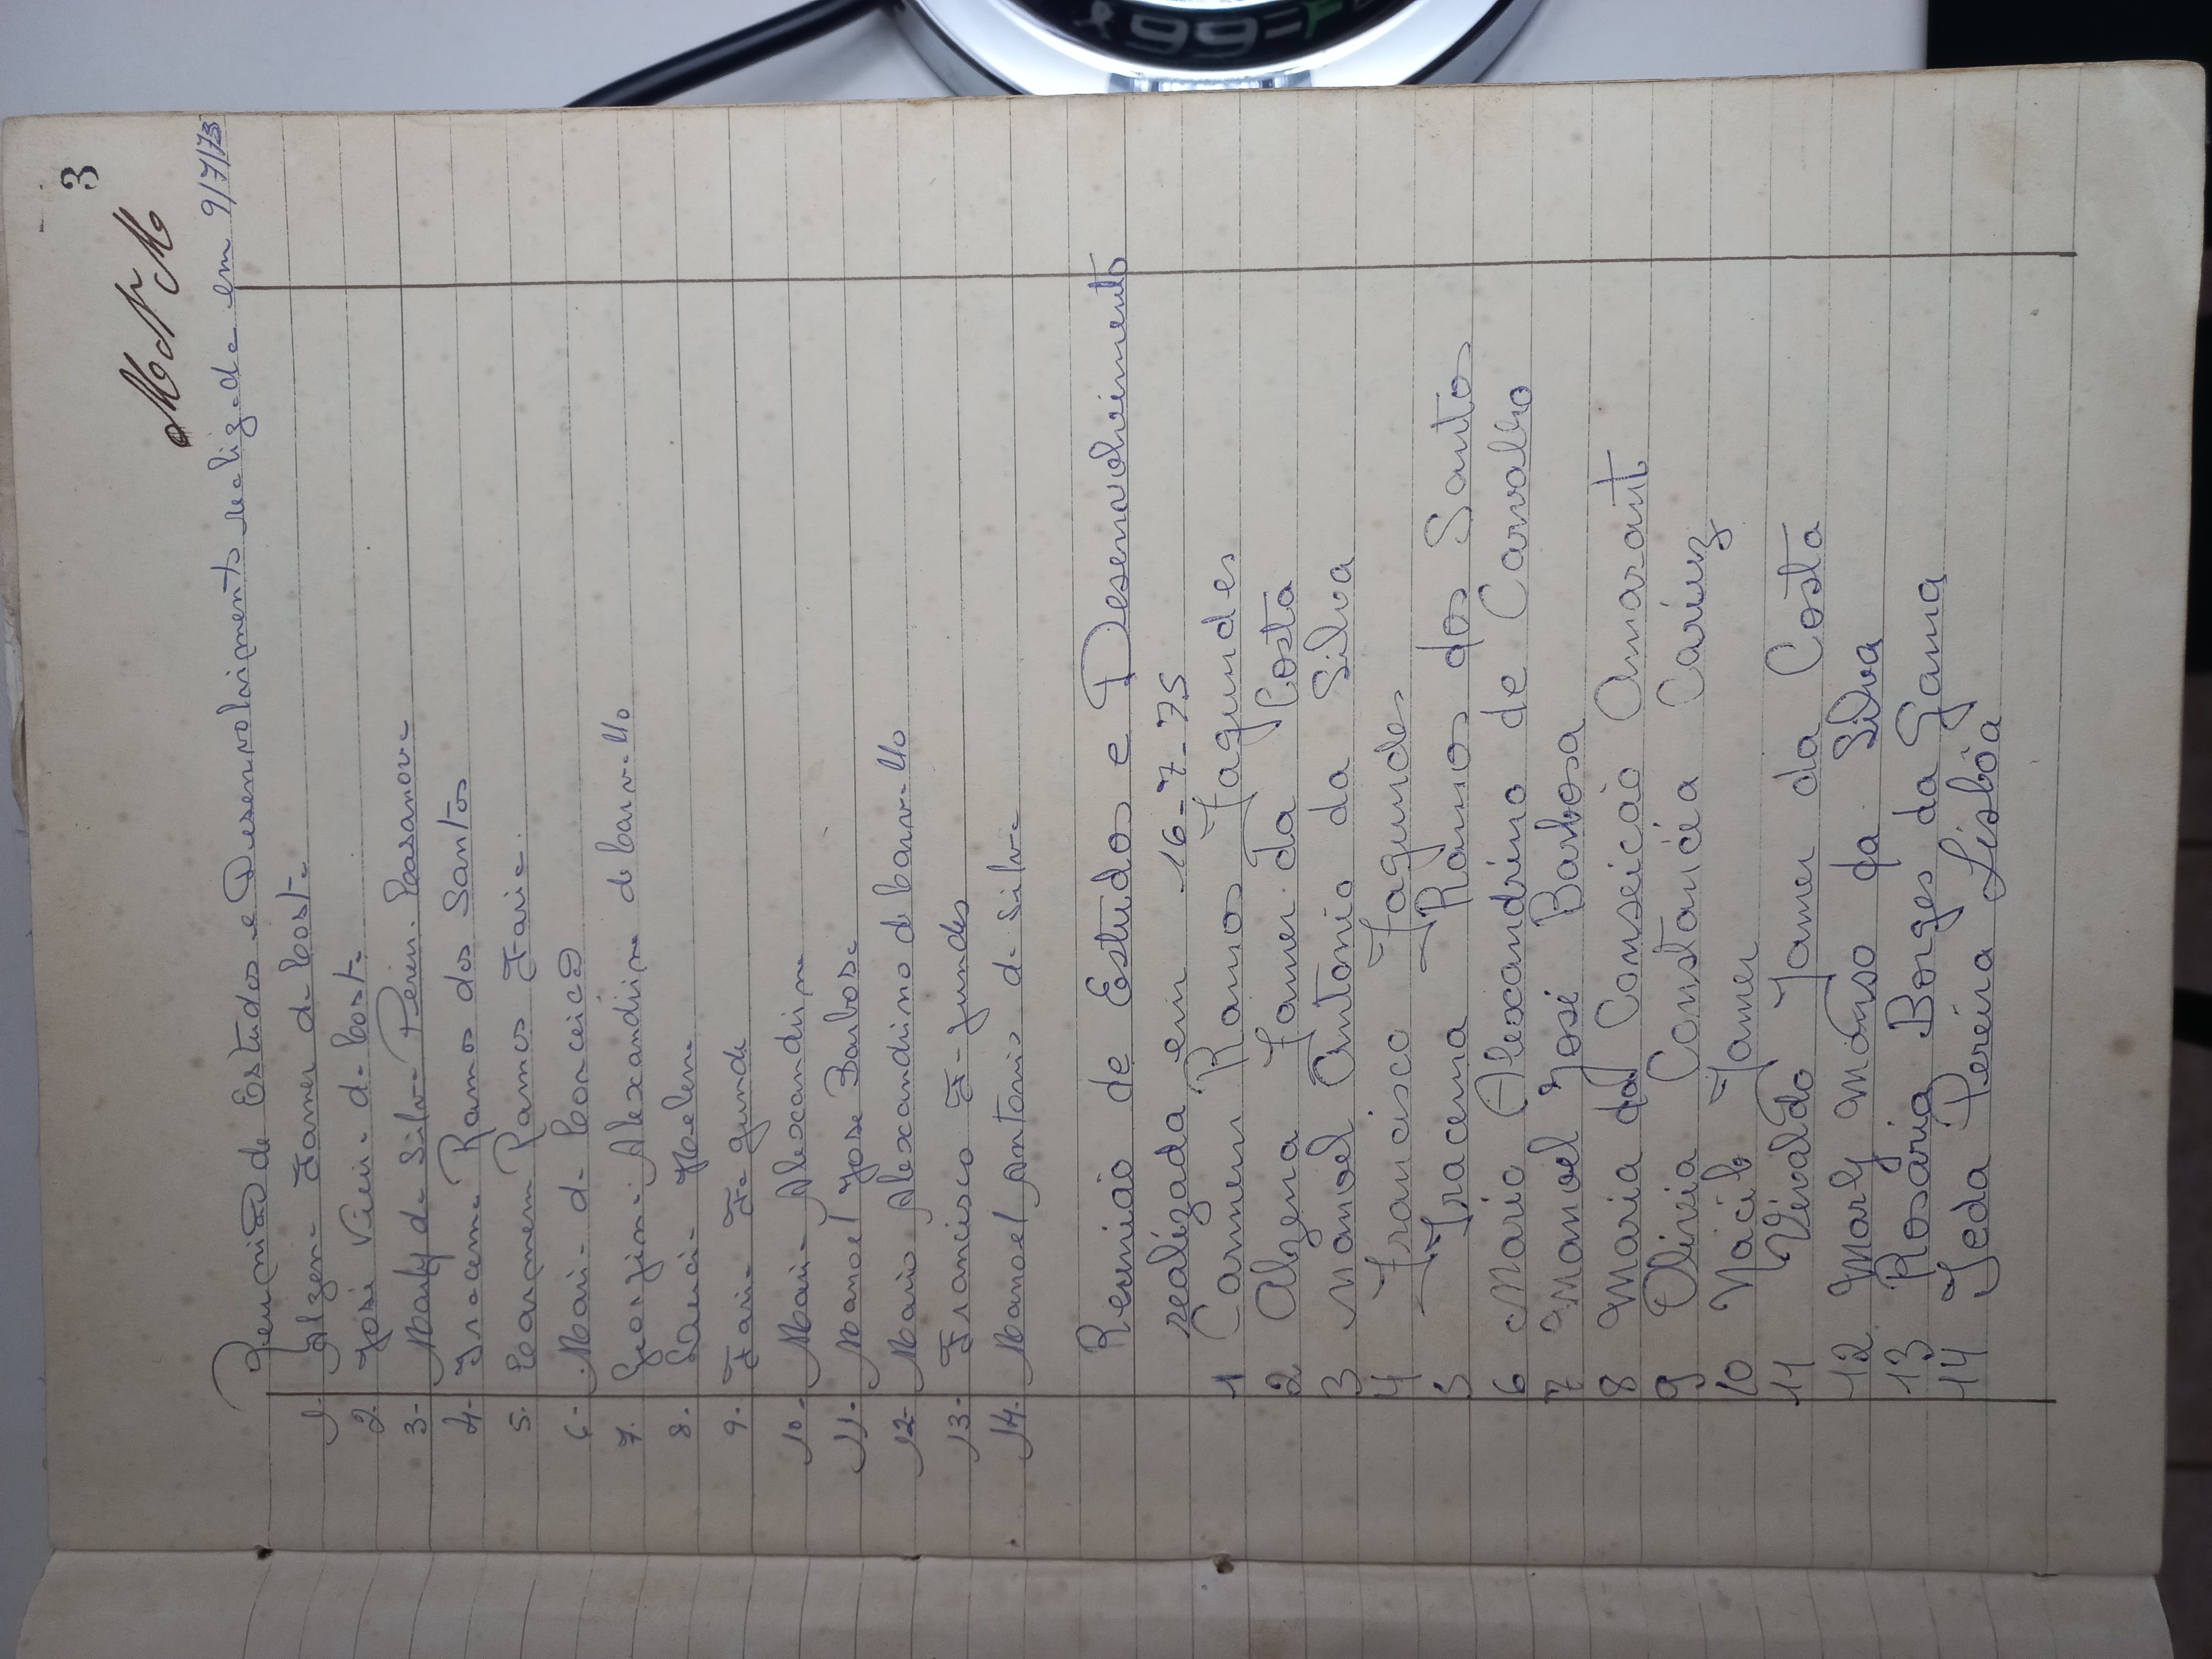 3
Reunião de Estudos e Desenvolvimento realizada em 9/7/73
1. Alzena Jamer da Costa
2. José Vieira da Costa
3- Marly da Silva Pereira Casanova
4- Iracema Ramos dos Santos
5. Carmem Ramos Faria.
6- Maria da Conceição
7. Georgina Alexandrina de Carvalho
8.
9. Faria Fagunde
10- Maria Alexandrina
11. Manoel José Barbosa
12- Mario Alexandrino de Carvalho
13- Francisco Fagundes
14. Manoel Antonio da Silva
Reunião de Estudos e Desenvolvimento
realizada em 16-7-75
1 Carmem Ramos Fagundes
2 Alzena Jamer da Costa
3 Manoel Antonio da Silva
4 Francisco Fagundes
5 Iracema Ramos dos Santos
6 Mario Alexandrino de Carvalho
7 Manoel José Barbosa
8 Maria da Conseicão Amarant
9 Olivia Constancia
10 Jamer
11 Vivaldo Jamer da Costa
12 Marly da Silva
13 Rosária Borges da Gama
14 Jeda Pereira Lisbôa